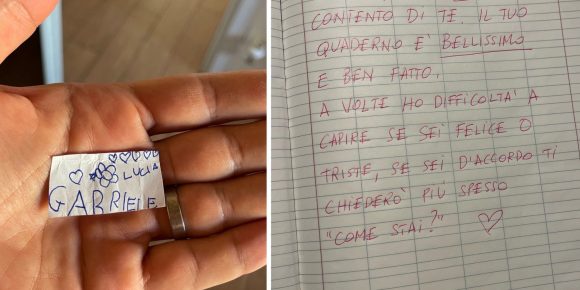 LUCIA
GABRIELE
CONTENTO DI TE. IL TUO
QUADERNO E' BELLISSIMO
E BEN FATTO.
A VOLTE HO DIFFICOLTA' A
CAPIRE SE SEI FELICE O
TRISTE, SE SEI D'ACCORDO TI
CHIEDERÒ PIÙ SPESSO
"COME STAI?"